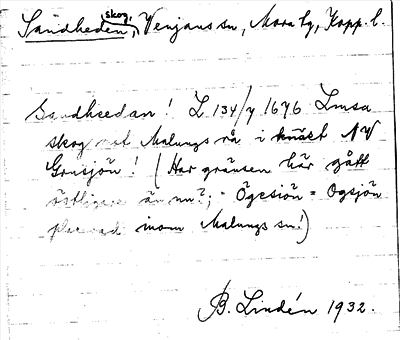 Sandheden, skog, Venjans sn, Mora tg, Kopp. l.
Sandhsedan! L 134/7 1676 Lmsa
skog mot Malungs rå i knäet NV
Gru­sjön! (Har gränsen här gått
östligare än nu?; - Ögesiön = Ogsjön
placerad inom Malungs sn!)
B. Lindén 1932.